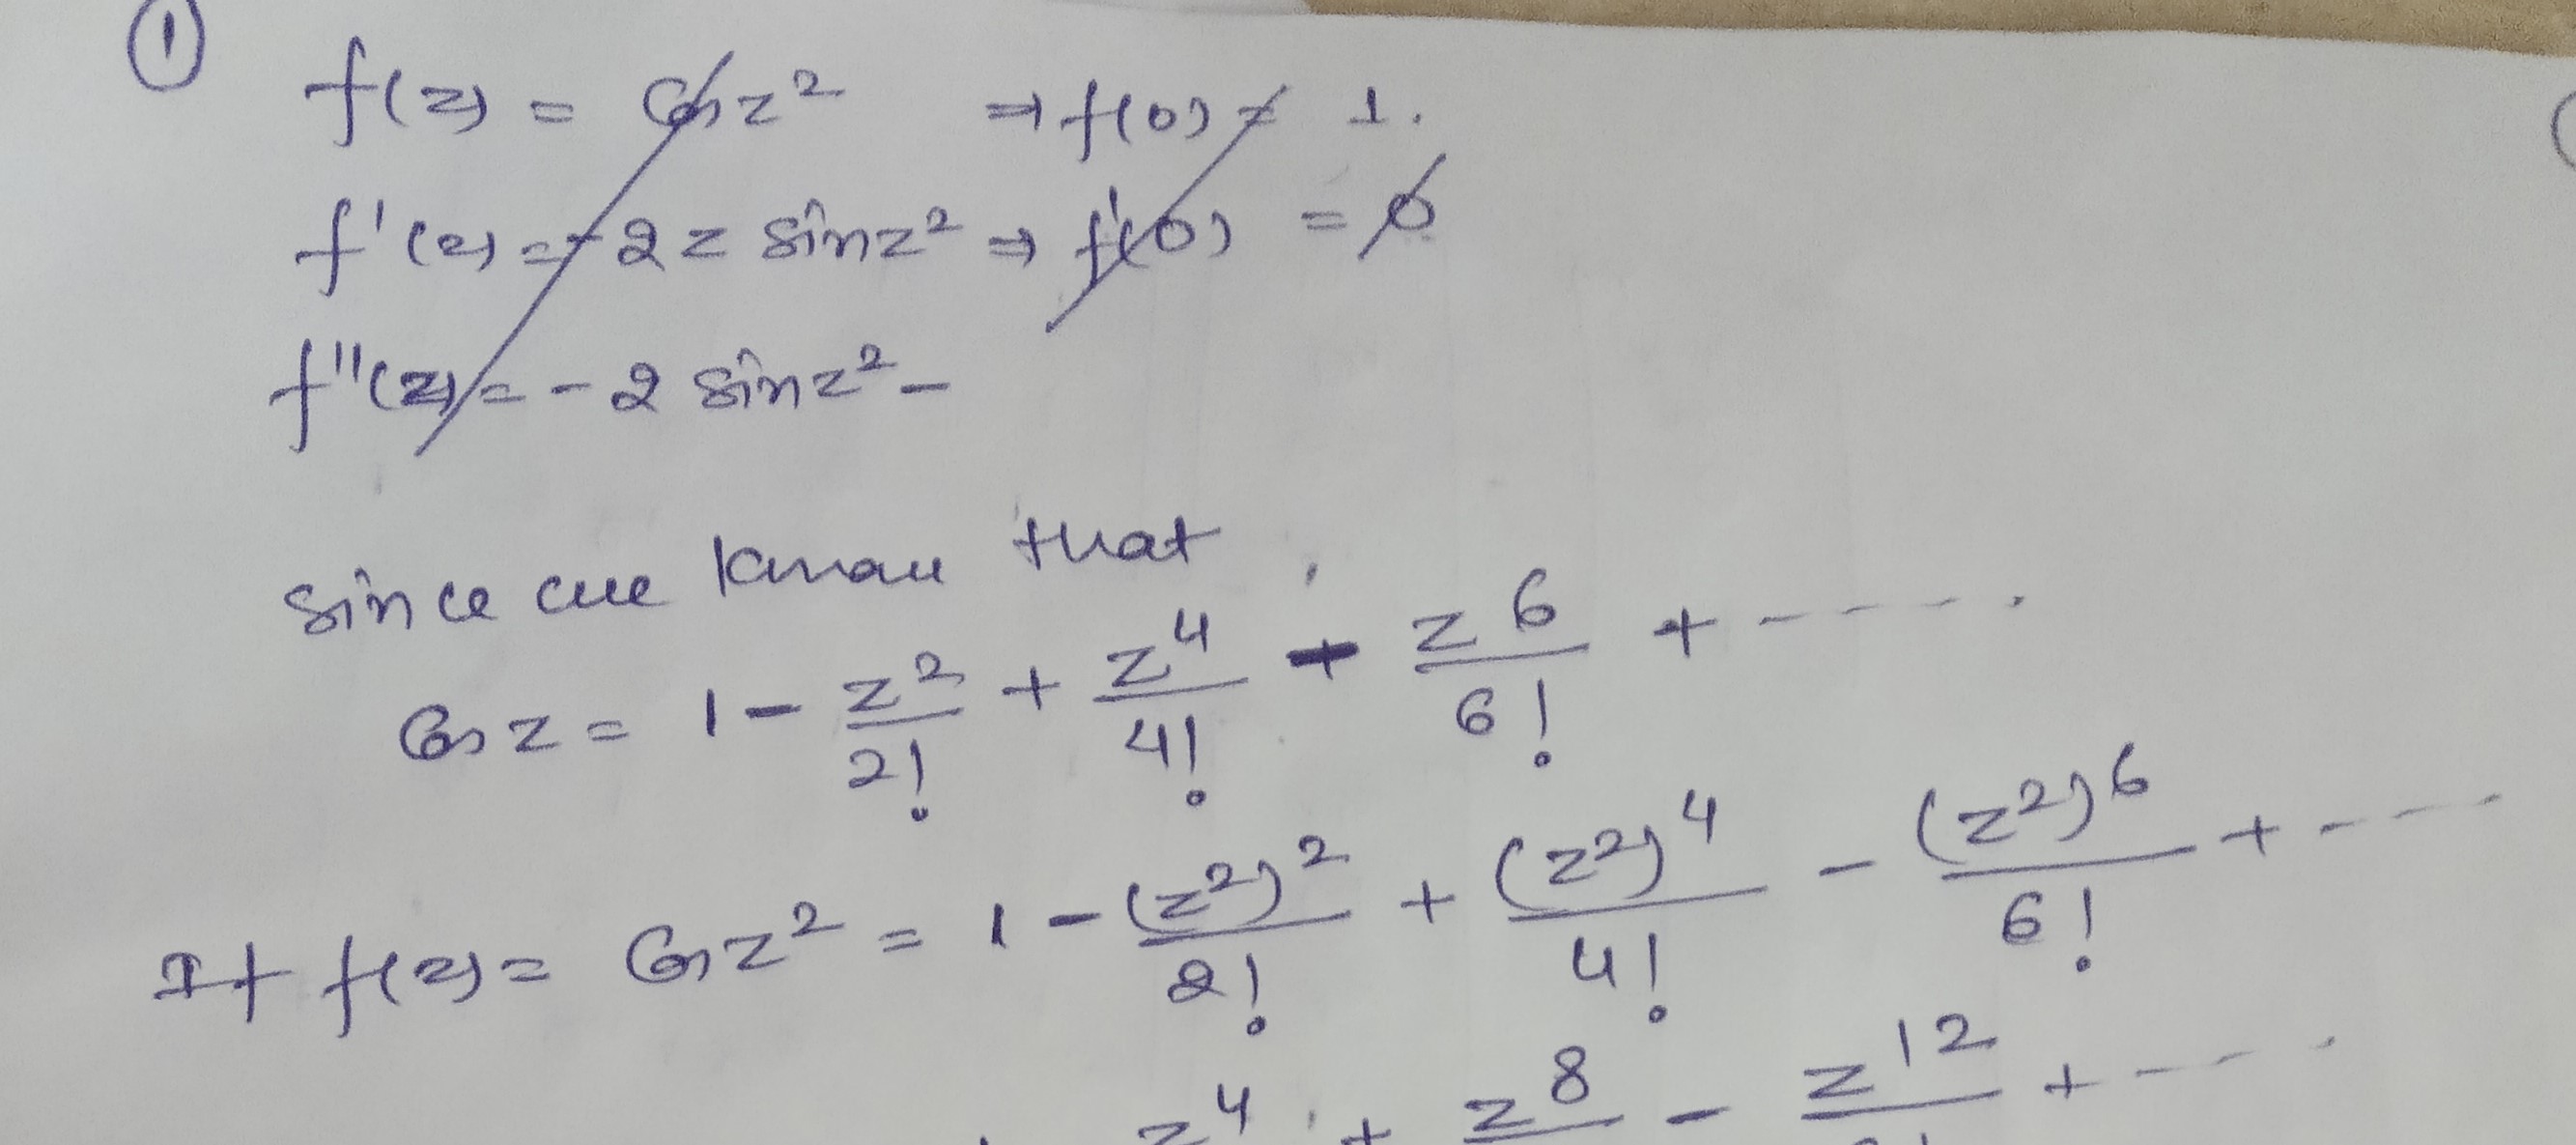 ①
f(z) = cos z² ⇒ f(0) = 1.
f'(z) = -2z sin z² ⇒ f'(0) = 0
f''(z) = -2 sin z² -
since we know that
cos z = 1 - z²/2! + z⁴/4! - z⁶/6! + -----.
If f(z) = cos z² = 1 - (z²)²/2! + (z²)⁴/4! - (z²)⁶/6! + ----
z⁴ + z⁸ - z¹² + ----